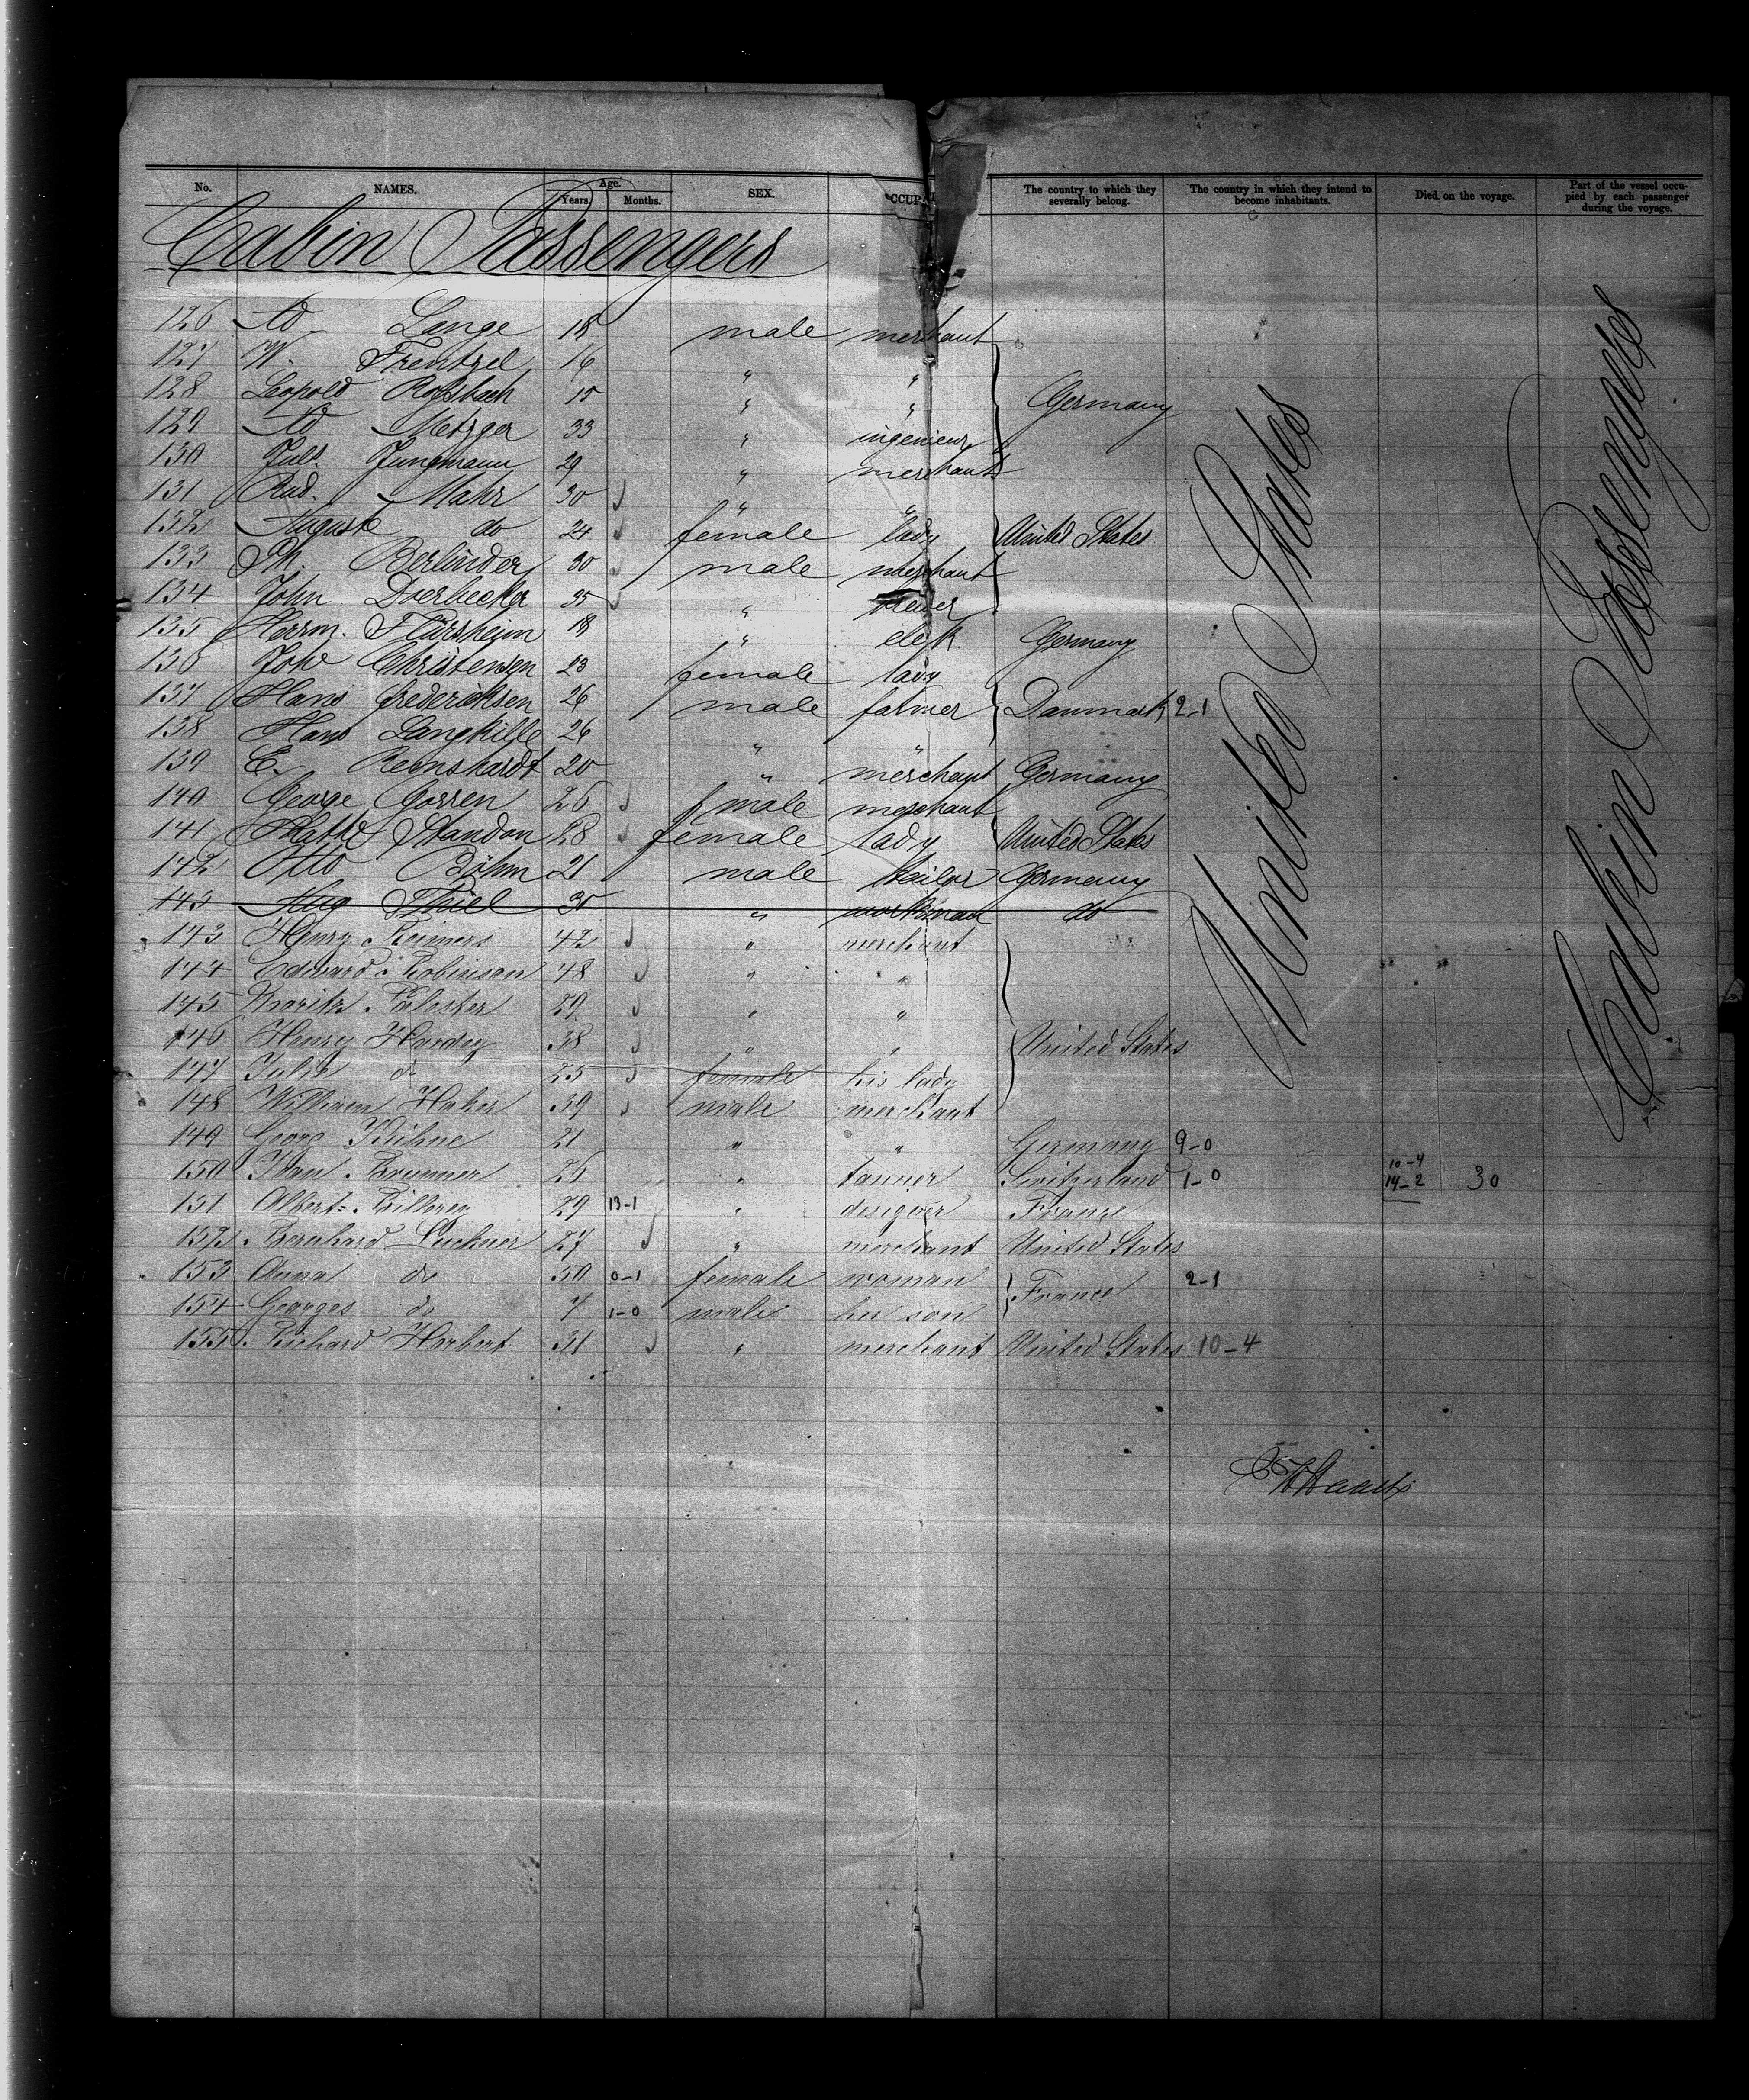 No. NAMES. Age. Years. Months. SEX. OCCUP The country to which they severally belong. The country in which they intend to become inhabitants. Died on the voyage. Part of the vessel occupied by each passenger during the voyage.
Cabin Passengers
126 Ad. Lange 18 male merchant
127 W. Frentzel 16 " "
128 Leopold 15 " " Germany
129 Ad Metzger 33 " ingenieur
130 Juls. Jungmann 29 " merchant
131 Rud. Mahr 30 " "
132 Auguste do 24 female lady United States
133 Ph. Berlinder 30 male merchant
134 John Doerbecker 35 "
135 Herrm. Flürsheim 18 " clerk Germany
136 Christensen 23 female lady
137 Hans frederiksen 26 male farmer Danmark 2-1
138 Hans Langkilde 26 " "
139 E. Reinshardt 20 " merchant Germany
140 George Gorren 26 male merchant
141 Standon 28 female lady United States
142 Otto Böhm 21 male tailor Germany
143 Aug Thiel 30 " workman do
143 Henry Reimers 42 " merchant
144 Edward Robinson 48 " "
145 Moritz 29 " "
146 Henry Hardey 38 " " United States
147 Julie do 25 female his lady
148 William Haker 39 male merchant
149 Georg Kühne 21 " " Germany 9-0
150 Brunner 26 " tanner Switzerland 1-0 10-4 14-2 30
151 Albert 29 13-1 " designer France
152 Bernhard Luckner 27 " merchant United States
153 Anna do 50 0-1 female woman France 2-1
154 Georges do 7 1-0 male her son
155 Richard Herbert 31 " merchant United States 10-4
United States
Cabin Passengers